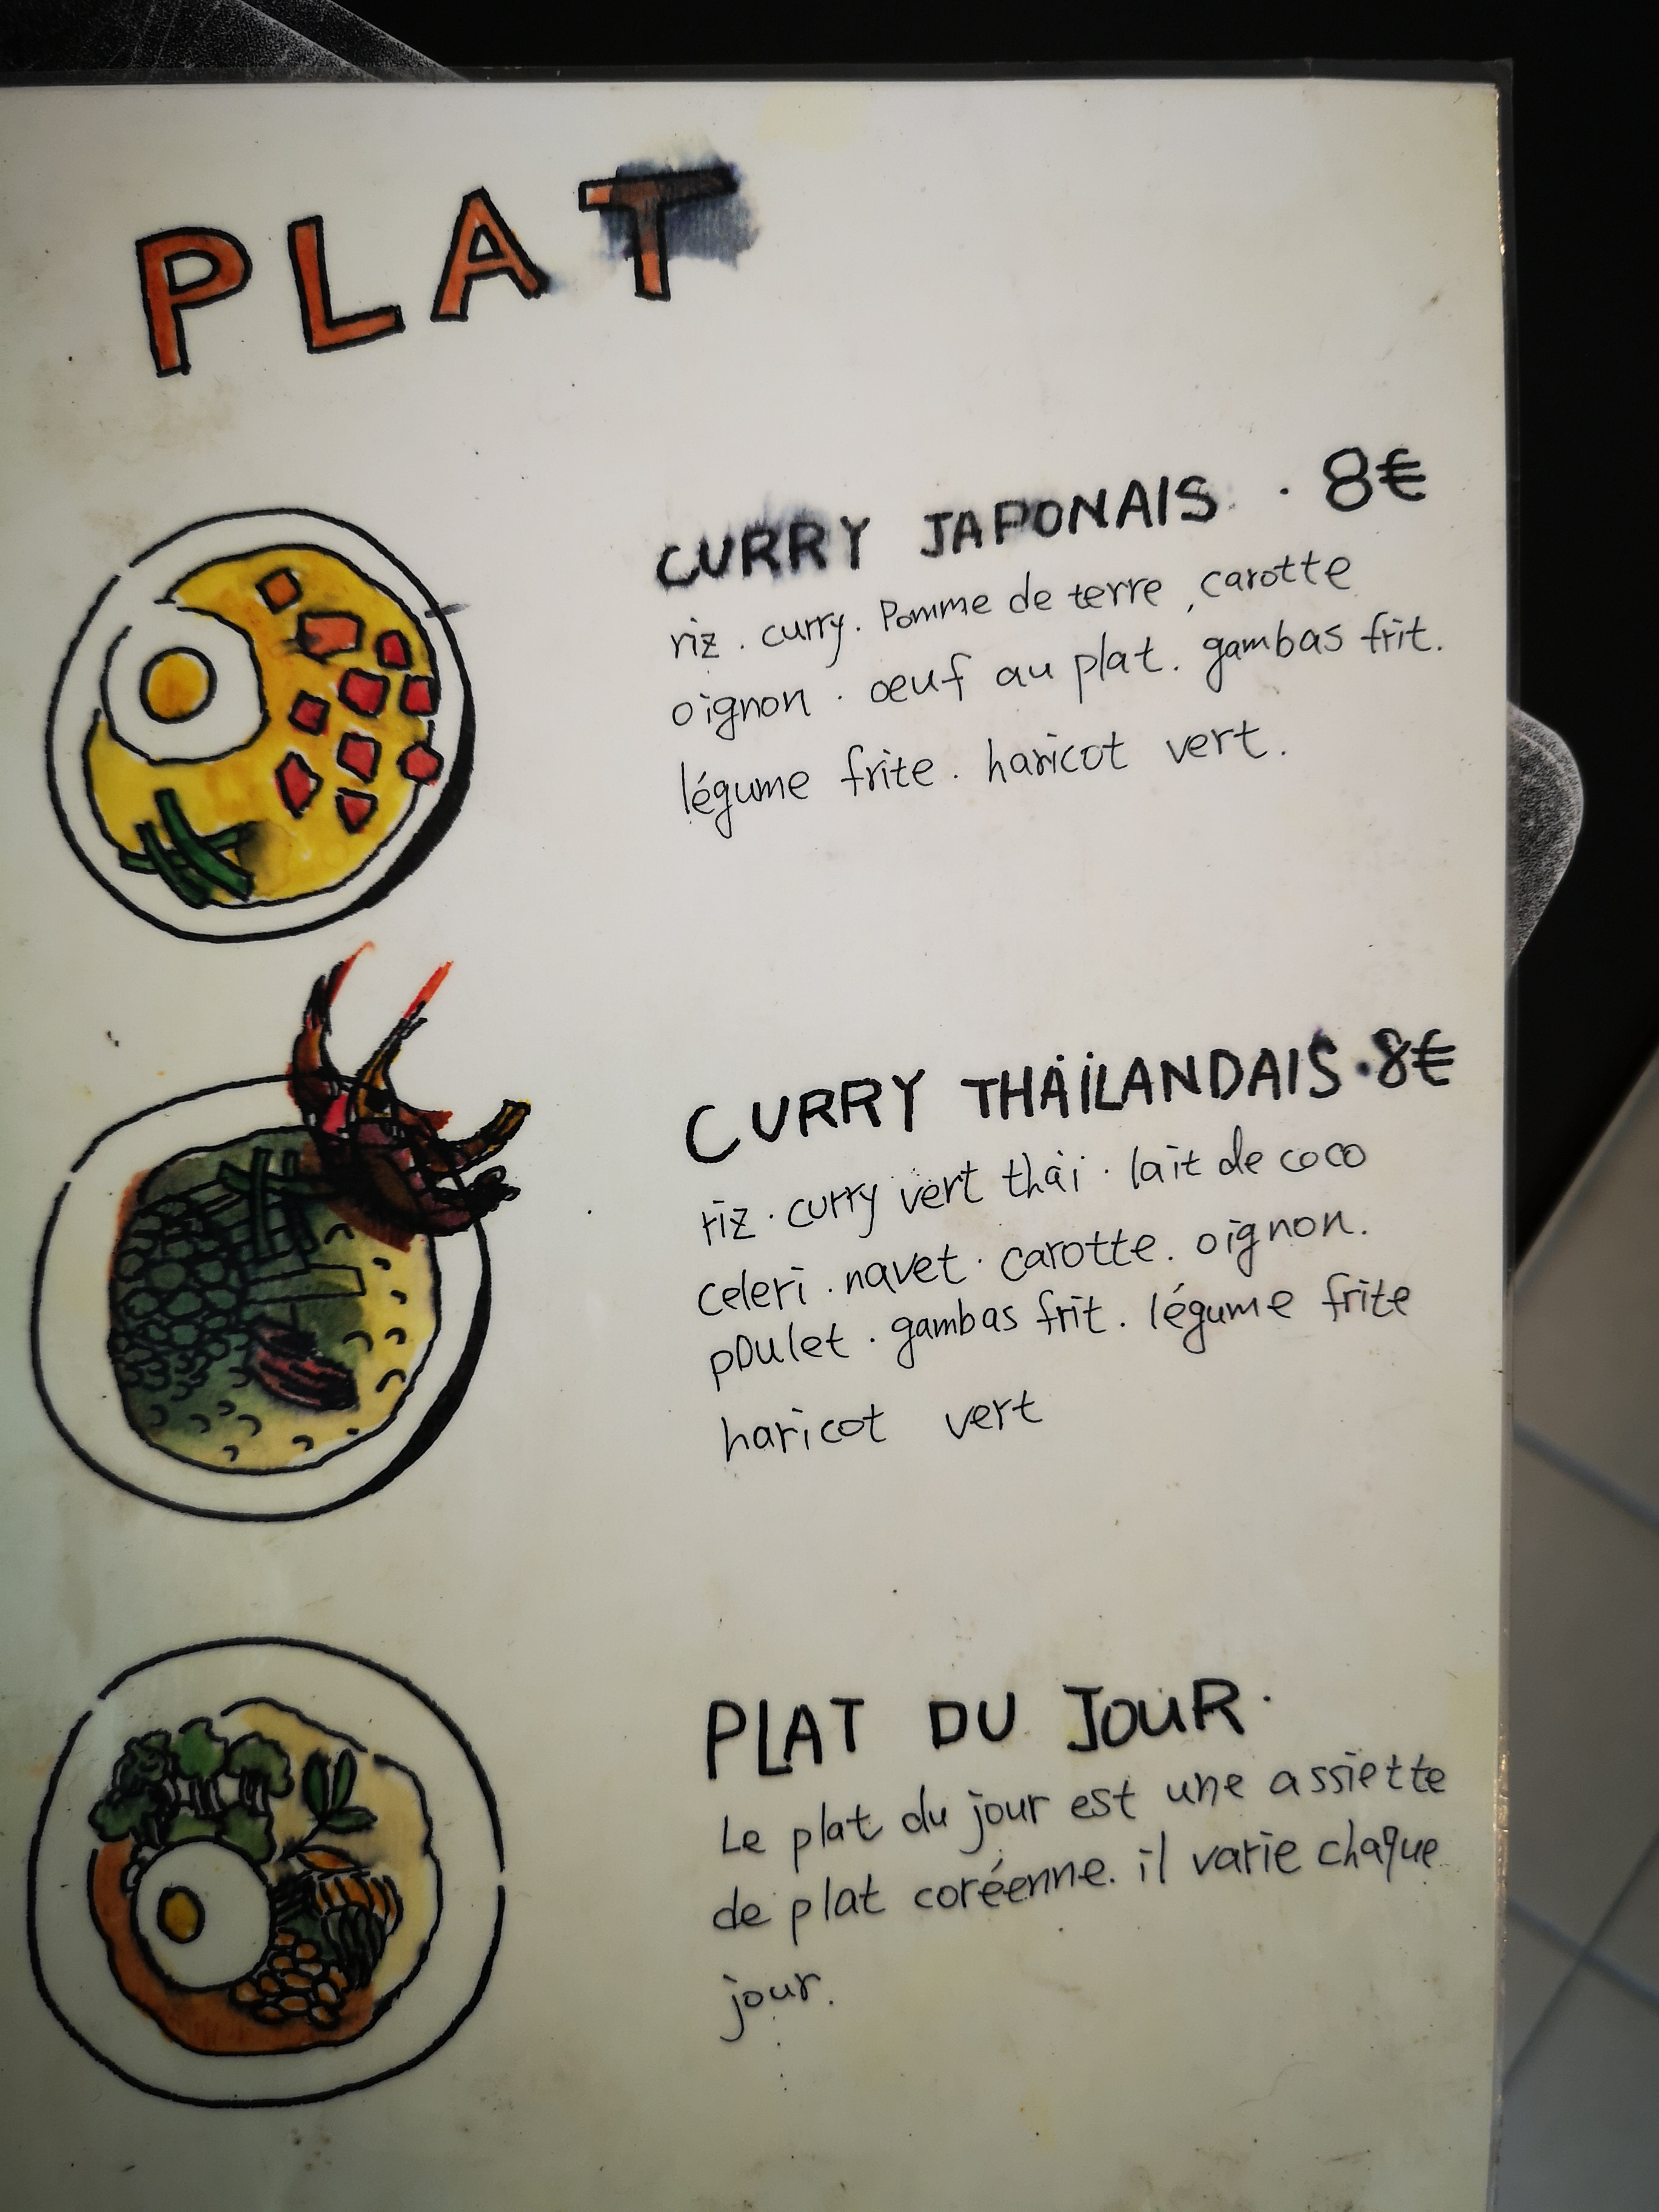 PLAT
CURRY JAPONAIS · 8€
riz . curry. Pomme de terre , carotte
oignon . oeuf au plat. gambas frit.
légume frite . haricot vert.
CURRY THAÏLANDAIS · 8€
riz . curry vert thaï . lait de coco
celeri . navet . carotte . oignon.
poulet . gambas frit . légume frite
haricot vert
PLAT DU JOUR .
Le plat du jour est une assiette
de plat coréenne. il varie chaque
jour.